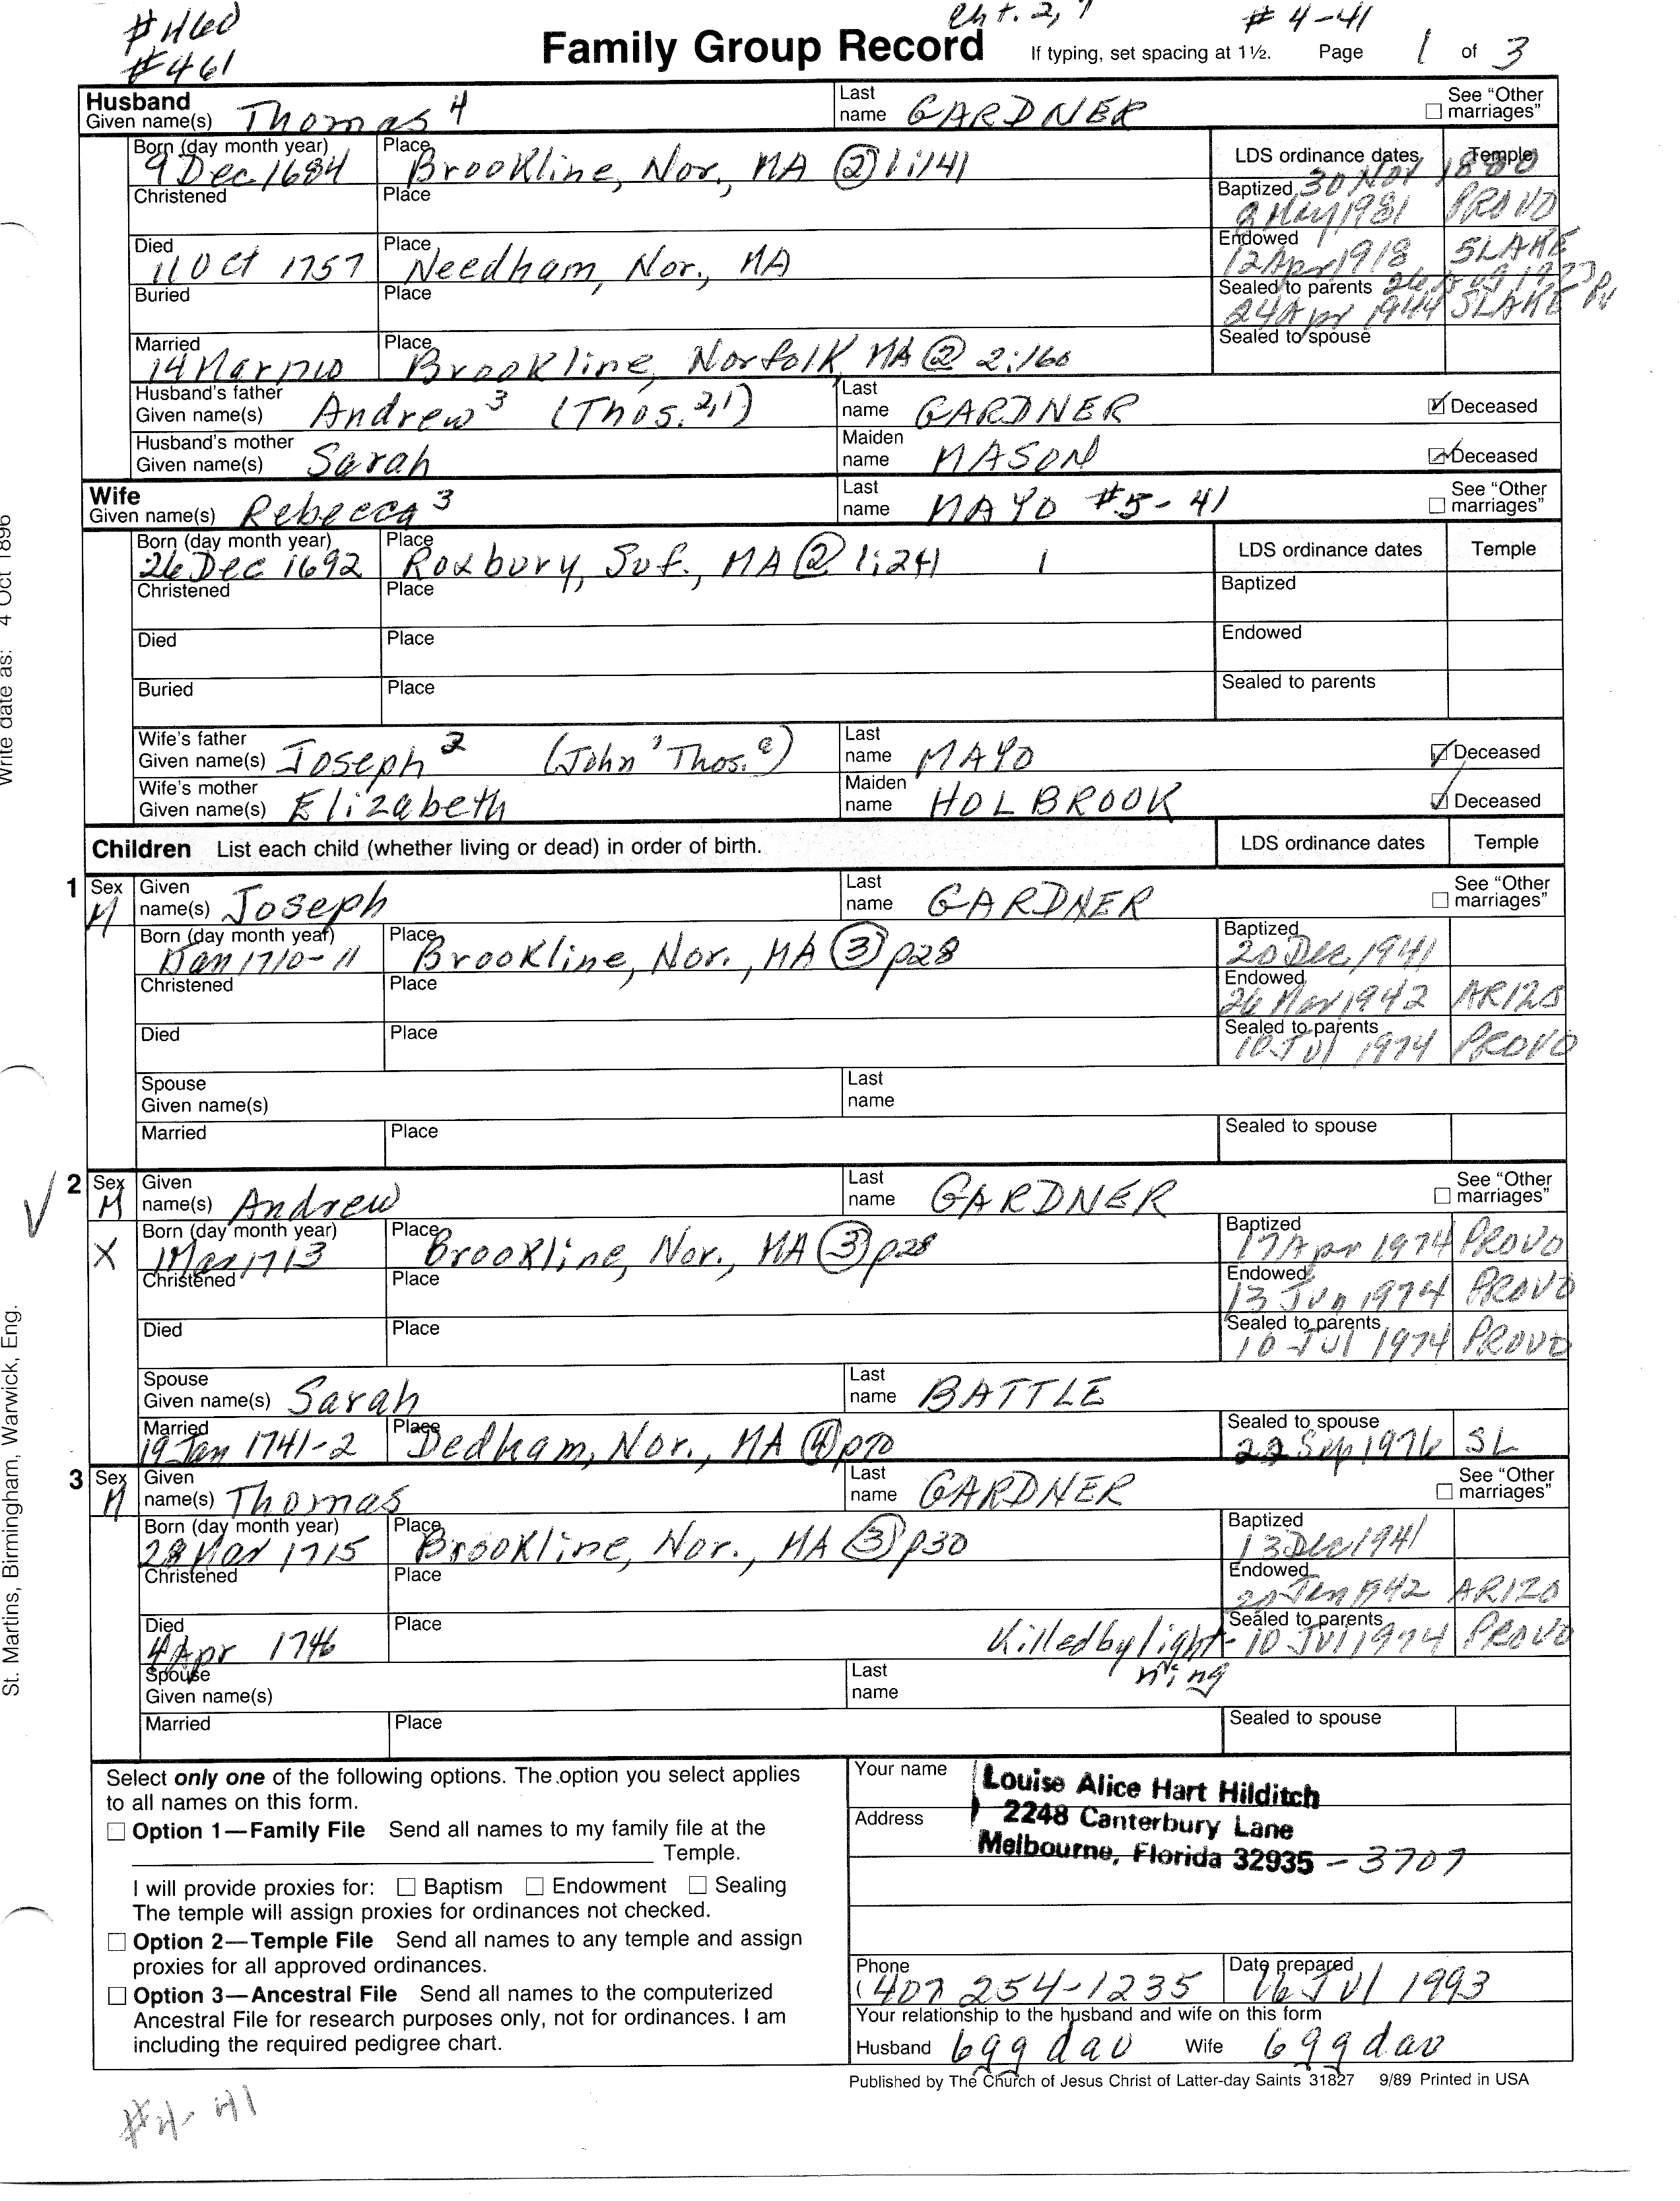 #460 Cht. 2, 1 # 4-41
#461 Family Group Record If typing, set spacing at 1½. Page 1 of 3
Husband Given name(s) Thomas 4 Last name GARDNER See "Other marriages"
Born (day month year) 9 Dec 1684 Place Brookline, Nor., MA ② 1:141 LDS ordinance dates Temple
Christened Place Baptized 30 Nov 1880
8 May 1981 PROVO
Died 11 Oct 1757 Place Needham, Nor., MA Endowed 12 Apr 1918 SLAKE
Buried Place Sealed to parents 1973 PV
24 Apr 1944 SLAKE
Married 14 Mar 1710 Place Brookline, Norfolk, MA @ 2:160 Sealed to spouse
Husband's father Given name(s) Andrew 3 (Thos. 2,1) Last name GARDNER Deceased
Husband's mother Given name(s) Sarah Maiden name MASON Deceased
Wife Given name(s) Rebecca 3 Last name MAYO #5-41 See "Other marriages"
Born (day month year) 26 Dec 1692 Place Roxbury, Suf., MA ② 1:241 1 LDS ordinance dates Temple
Christened Place Baptized
Died Place Endowed
Buried Place Sealed to parents
Wife's father Given name(s) Joseph 2 (John 1 Thos. e) Last name MAYO Deceased
Wife's mother Given name(s) Elizabeth Maiden name HOLBROOK Deceased
Children List each child (whether living or dead) in order of birth. LDS ordinance dates Temple
1 Sex M Given name(s) Joseph Last name GARDNER See "Other marriages"
Born (day month year) Jan 1710-11 Place Brookline, Nor., MA ③ p28 Baptized 20 Dec 1941
Christened Place Endowed 26 Mar 1942 ARIZO
Died Place Sealed to parents 10 Jul 1974 PROVO
Spouse Given name(s) Last name
Married Place Sealed to spouse
2 Sex M Given name(s) Andrew Last name GARDNER See "Other marriages"
X Born (day month year) 1 Mar 1713 Place Brookline, Nor., MA ③ p28 Baptized 17 Apr 1974 PROVO
Christened Place Endowed 13 Jun 1974 PROVO
Died Place Sealed to parents 10 Jul 1974 PROVO
Spouse Given name(s) Sarah Last name BATTLE
Married 19 Jan 1741-2 Place Dedham, Nor., MA ④ p70 Sealed to spouse 22 Sep 1976 SL
3 Sex M Given name(s) Thomas Last name GARDNER See "Other marriages"
Born (day month year) 28 Mar 1715 Place Brookline, Nor., MA ③ p30 Baptized 13 Dec 1941
Christened Place Endowed 20 Jan 1942 ARIZO
Died 4 Apr 1746 Place Killed by light- Sealed to parents 10 Jul 1974 PROVO
ning
Spouse Given name(s) Last name
Married Place Sealed to spouse
Select only one of the following options. The option you select applies
to all names on this form.
Option 1—Family File Send all names to my family file at the
Temple.
I will provide proxies for: Baptism Endowment Sealing
The temple will assign proxies for ordinances not checked.
Option 2—Temple File Send all names to any temple and assign
proxies for all approved ordinances.
Option 3—Ancestral File Send all names to the computerized
Ancestral File for research purposes only, not for ordinances. I am
including the required pedigree chart.
Your name Louise Alice Hart Hilditch
Address 2248 Canterbury Lane
Melbourne, Florida 32935 - 3707
Phone (407 254-1235 Date prepared 16 Jul 1993
Your relationship to the husband and wife on this form
Husband 6ggdau Wife 6ggdau
Published by The Church of Jesus Christ of Latter-day Saints 31827 9/89 Printed in USA
#4-41
Write date as: 4 Oct 1896
St. Martins, Birmingham, Warwick, Eng.